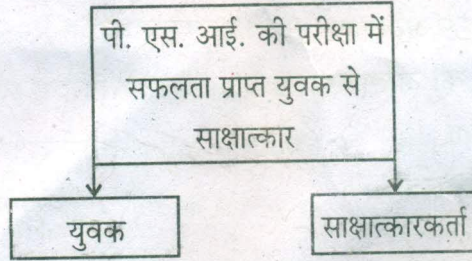 पी. एस. आई. की परीक्षा में
सफलता प्राप्त युवक से
साक्षात्कार
युवक
साक्षात्कारकर्ता